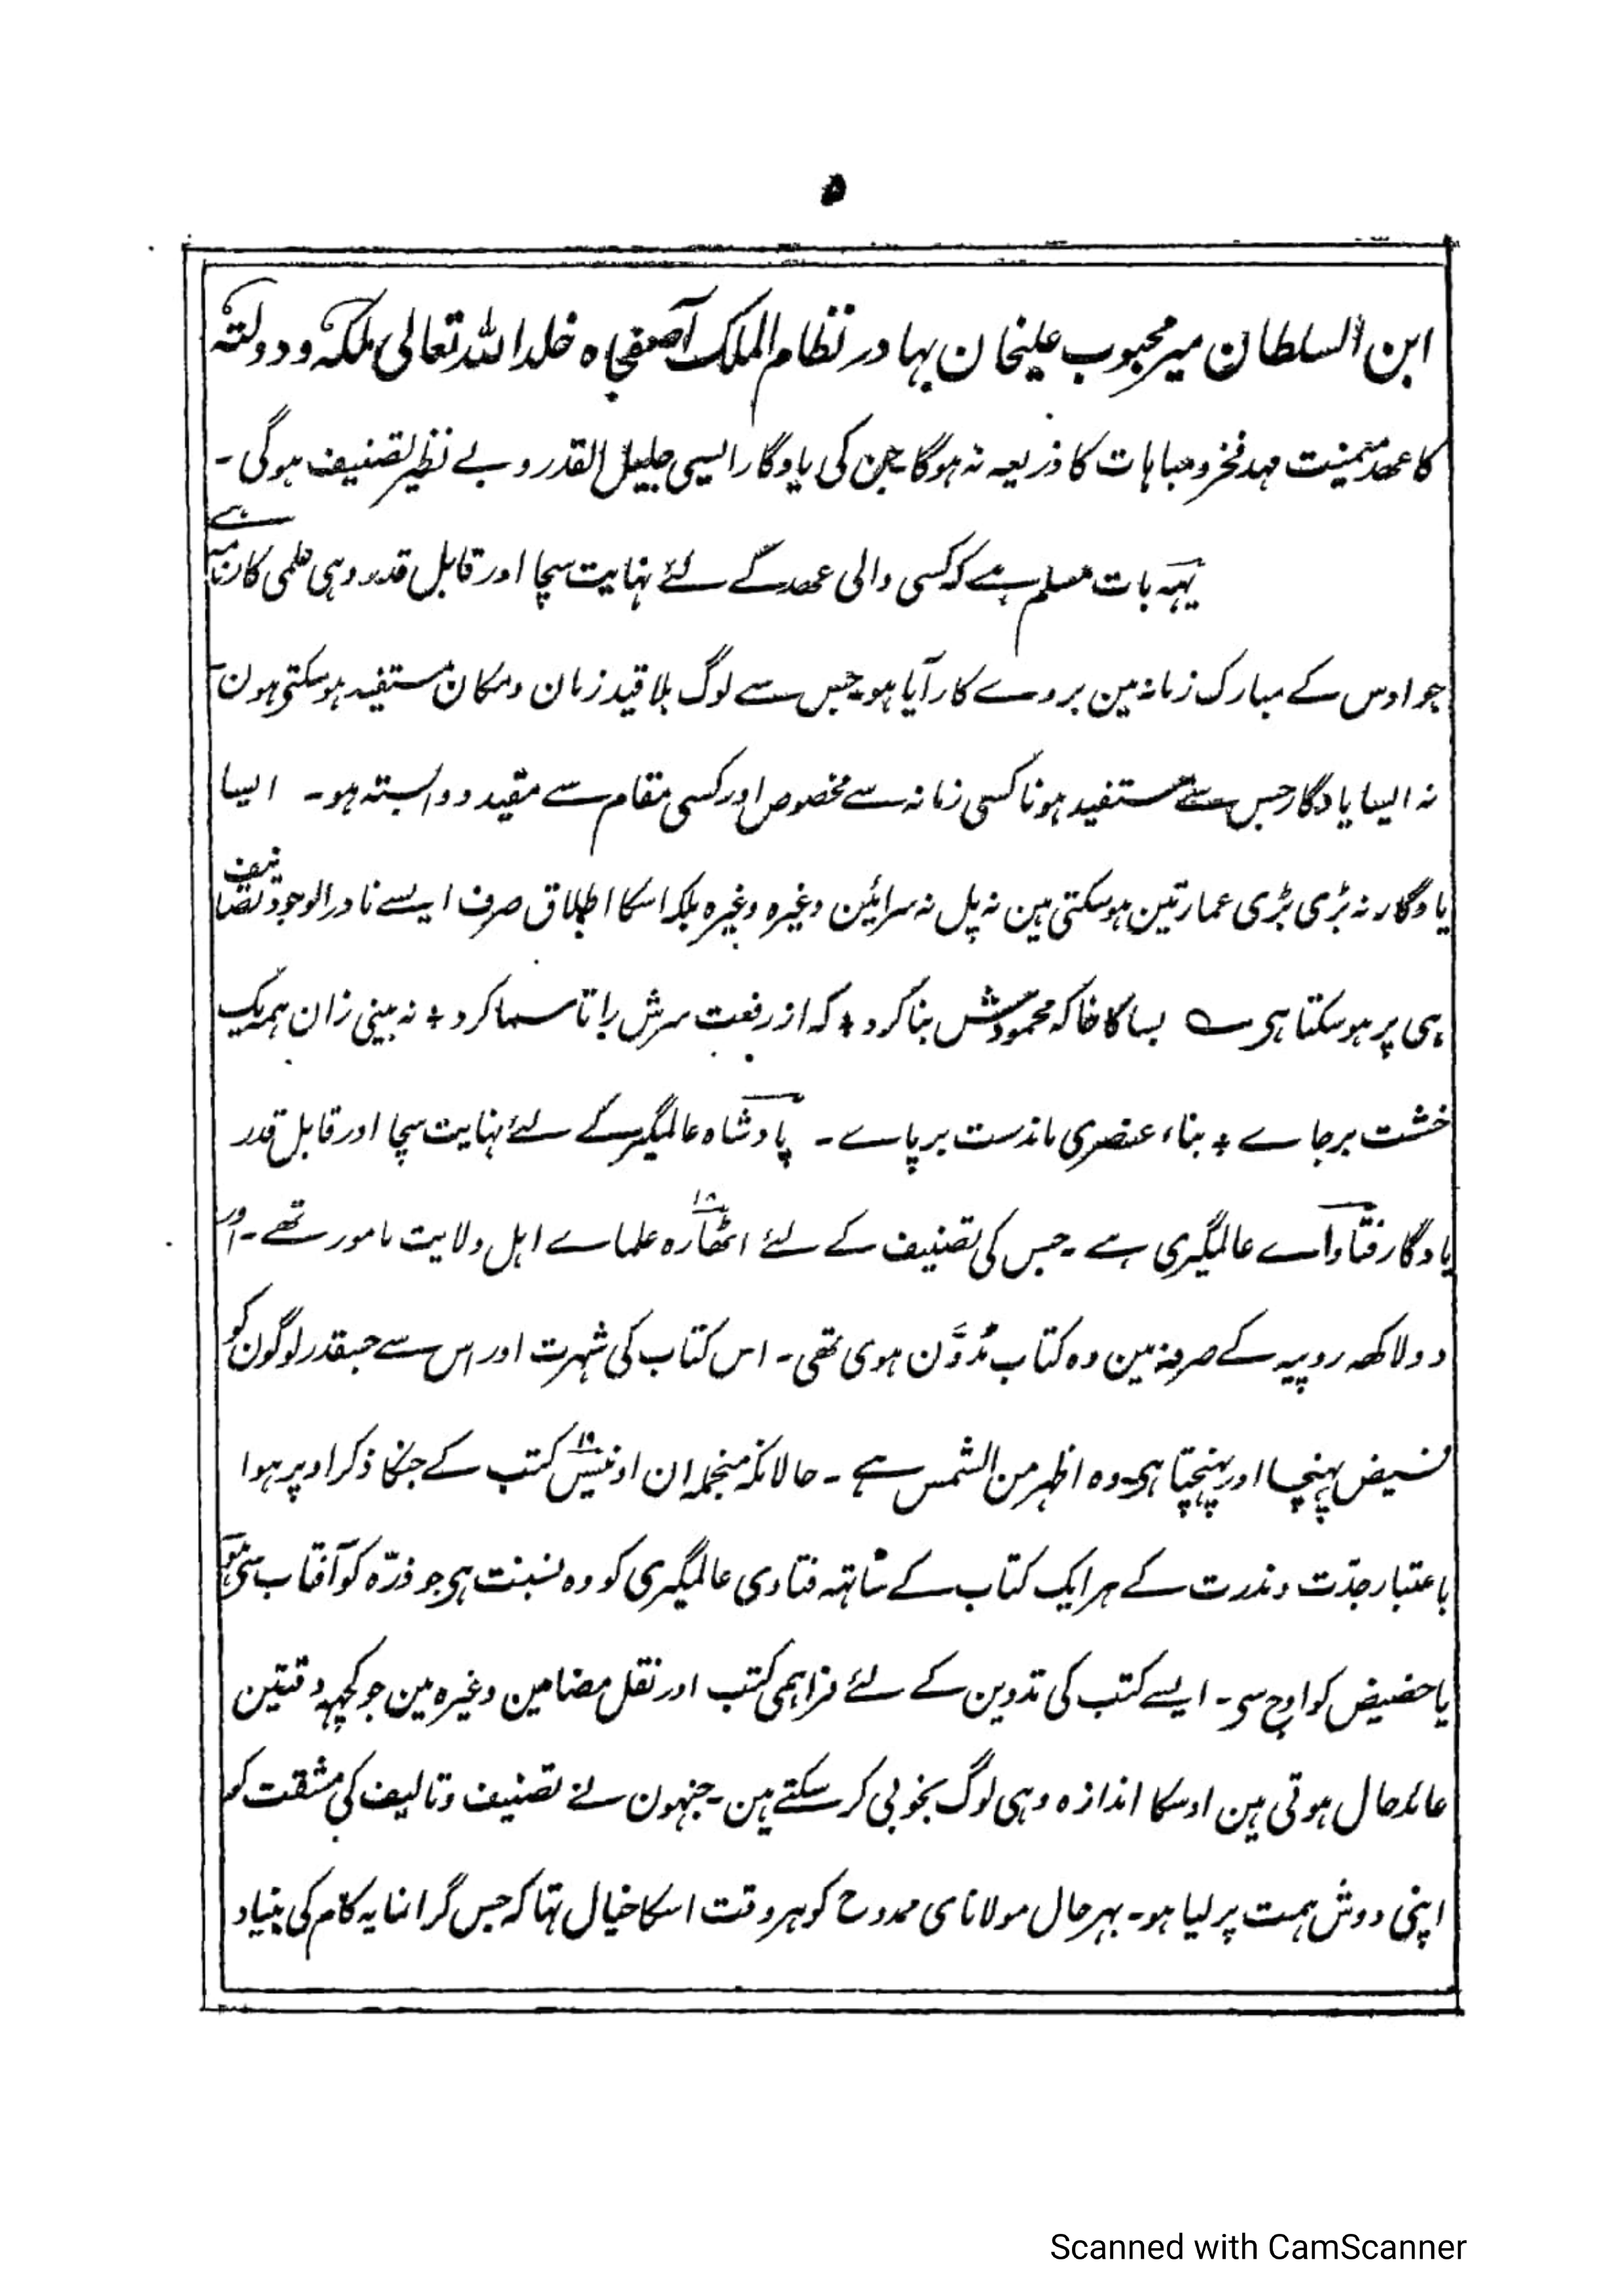 ۵
ابن السلطان میر محبوب علیخان بہادر نظام الملک آصفجاہ خلد اللہ تعالی ملکہٗ و دولتہٗ
کا عھد میمنت مہد فخر و مباہات کا ذریعہ نہ ہوگا۔ جن کی یادگار ایسی جلیل القدر و بے نظیر تصنیف ہوگی ۔
یہہ بات مسلم ہے کہ کسی والی عھد کے لئے نہایت سچا اور قابل قدر وہی علمی کارنامہ ہے
جو اوس کے مبارک زمانہ مین بروے کار آیا ہو۔ جس سے لوگ بلا قید زمان و مکان مستفید ہوسکتی ہون۔
نہ ایسا یادگار جس سے مستفید ہونا کسی زمانہ سے مخصوص اور کسی مقام سے مقید و وابستہ ہو۔ ایسا
یادگار نہ بڑی بڑی عمارتین ہوسکتی ہین نہ پل نہ سرائین وغیرہ وغیرہ بلکہ اسکا اطلاق صرف ایسے نادر الوجود تصانیف
ہی پر ہوسکتا ہی ؎ بسا کاخا کہ محمودش بنا کرد ٭ کہ از رفعت سرش را تا سما کرد ٭ نہ بینی زان ہمہ یک
خشت بر جاے ٭ بناء عنصری ماندست بر پاے ۔ پادشاہ عالمگیر کے لئے نہایت سچا اور قابل قدر
یادگار فتاواے عالمگیری ہے ۔ جس کی تصنیف کے لئے اٹھارہ ۱۸ علماے اہل ولایت مامور تھے ۔ اور
دو لاکھہ روپیہ کے صرفہ مین وہ کتاب مُدَوَّن ہوی تھی ۔ اس کتاب کی شہرت اور اس سے جسقدر لوگون کو
فیض پہنچا اور پہنچتا ہی۔ وہ اظہر من الشمس ہے ۔ حالانکہ منجملہ ان اونیس ۱۹ کتب کے جنکا ذکر اوپر ہوا
باعتبار جدّت و ندرت کے ہر ایک کتاب کے ساتہہ فتاوی عالمگیری کو وہ نسبت ہی جو ذرّہ کو آفتاب سی
یا حضیض کو اوج سی ۔ ایسے کتب کی تدوین کے لئے فراہمی کتب اور نقل مضامین وغیرہ مین جو کچہہ دقتین
عائد حال ہوتی ہین اوسکا اندازہ وہی لوگ بخوبی کر سکتے ہین ۔ جنہون نے تصنیف و تالیف کی مشقت کو
اپنی دوش ہمت پر لیا ہو۔ بہر حال مولانای ممدوح کو ہر وقت اسکا خیال تہا کہ جس گرانمایہ کام کی بنیاد
Scanned with CamScanner